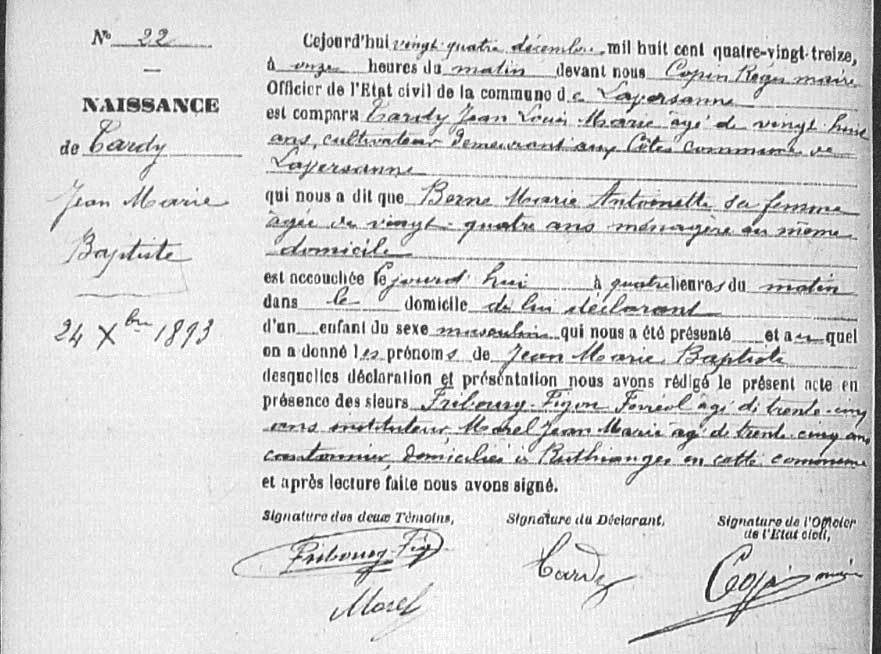 N° 22
NAISSANCE
de Tardy
Jean Marie
Baptiste
24 Xbre 1893
Cejourd'hui vingt-quatre décembre mil huit cent quatre-vingt-treize,
à onze heures du matin devant nous Copin Régis maire
Officier de l'Etat civil de la commune de Laversanne
est comparu Tardy Jean Louis Marie âgé de vingt huit
ans, cultivateur demeurant aux Côtes commune de
Laversanne
qui nous a dit que Berne Marie Antoinette sa femme
âgée de vingt-quatre ans ménagère au même
domicile
est accouchée cejourd'hui à quatre heures du matin
dans le domicile de lui déclarant
d'un enfant du sexe masculin qui nous a été présenté et au quel
on a donné les prénoms de Jean Marie Baptiste
desquelles déclaration et présentation nous avons rédigé le présent acte en
présence des sieurs Fribourg-Figon Ferréol âgé de trente-cinq
ans instituteur, Morel Jean Marie âgé de trente-cinq ans
cantonnier, domiciliés à Ruthianges en cette commune
et après lecture faite nous avons signé.
Signature des deux Témoins,
Signature du Déclarant,
Signature de l'Officier
de l'Etat civil,
Fribourg-Fig
Tardy
Copin maire
Morel